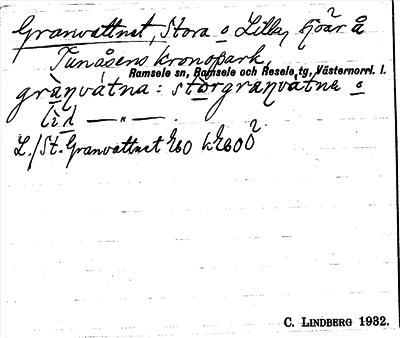 Granvattnet, Stora o Lilla, tjöar å
Tunåsens kronopark,
Ramsele sn, Ramsele och Resele tg, Västernorrl. l.
grànvátna: stórgranvatna o
lìd — „ — .
L./St. Granvattnet
C. LINDBERG 1932.